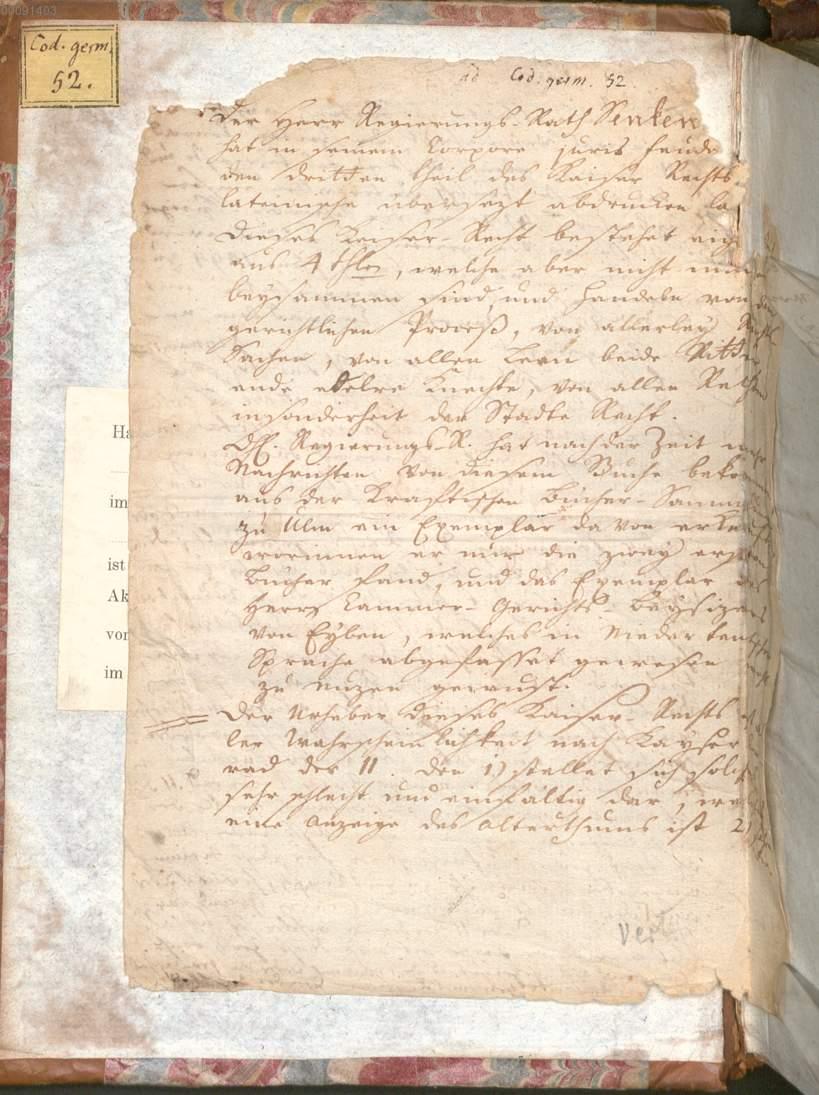 00091403
Cod. germ.
52.
ad Cod. germ. 52.
Der Herr Regierungs-Rath Senken
hat in seinem Corpore juris feud
den dritten theil des Kaiser Rechts
lateinische übersezt abdrucken la
Dieses Keiser-Recht bestehet eig
aus 4 thln, welche aber nicht
beysammen sind und handeln von
gerichtlichen Proceß, von allerley
Sachen, von allen Lern beide Ritt
ende edelre Knechte, von allen
insonderheit der Stadte Recht.
H. Regierungs-R. hat nach der Zeit
Nachrichten von diesem Buche
aus der Krafftischen Bücher-Samml
zu Ulm ein Exemplar davon
worinnen er nur die zwey
Bücher fand, und das Exemplar des
Herrn Cammer-Gerichts-Beysizers
von Eyben, welches in Nieder
Sprache abgefasset gewesen
zu nuzen gewust.
Der Urheber dieses Kaiser-Rechts
ler Wahrscheinlichkeit nach Kayser
rad der II. den 1) stellet sich
sehr schlecht und einfältig dar,
eine Anzeige des Alterthums ist 2)
Ha
im
ist
Ak
vor
im